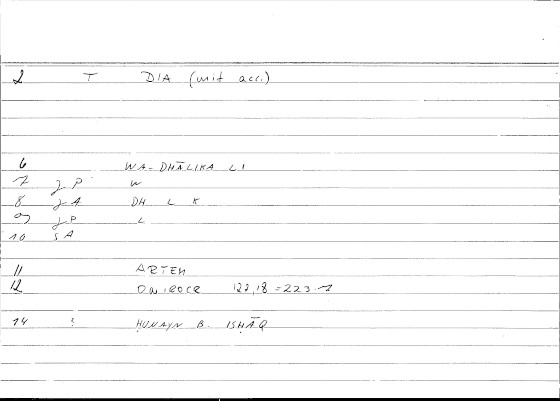 2 T DIA (mit acc.)
6 WA-DHĀLIKA LI
7 γ P W
8 γ A DH L K
9 γ P L
10 S A
11 ARTEM
12 ONIROCR 122,18 = 223.7
14 HUNAYN B. ISHĀQ